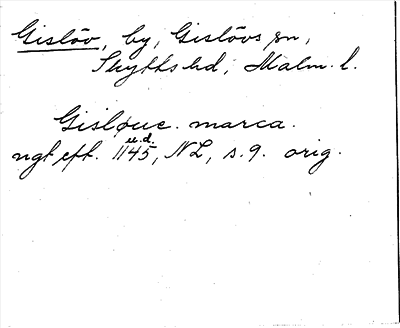 Gislöv, by, Gislövs sn,
Skytts hd, Malm. l.
Gisløue. marca.
u.d.
ngt eft. 1145, NL, s. 9. orig.